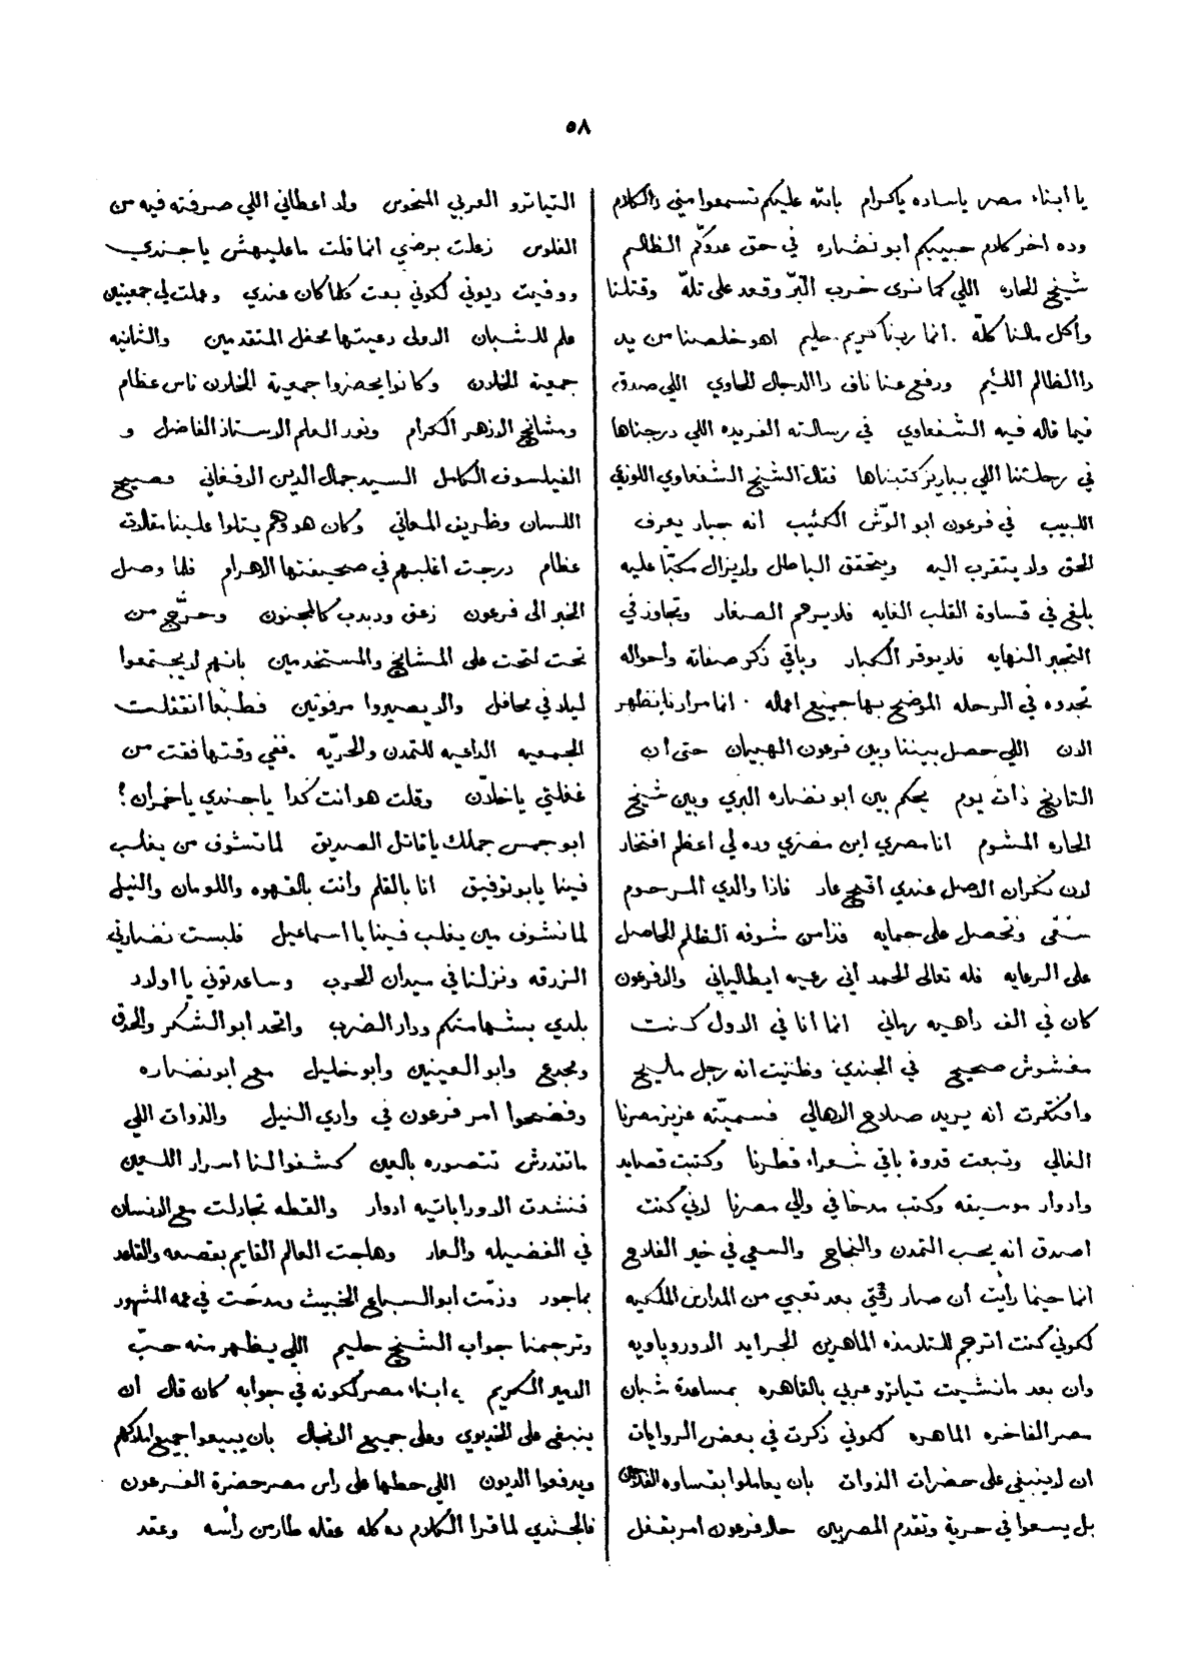 ٥٨
يا ابناء مصر ياساده ياكرام بالله عليكم تسمعوا مني دا الكلام
وده اخر كلام حبيبكم ابو نضاره في حق عدوكم الظالم
شيخ الحاره اللي كما نرى خرب البرّ وقعد على تلّه وقتلنا
وأكل مالنا كلّه . انما ربنا كريم . حليم اهو خلصنا من يد
دا الظالم اللئيم ورفع عنا ناف دا الدجال الحاوي اللي صدق
فيما قاله فيه الشفعاوي في رسالته الفريده اللي درجناها
في رحلتنا اللي بباريز كتبناها فقال الشيخ الشفعاوي اللوذعي
اللبيب في فرعون ابو الوّش الكئيب انه جبار يعرف
الحق ولا يتقرب اليه ويتحقق الباطل ولا يزال مكبّا عليه
بلغ في قساوة القلب الغايه فلا يرحم الصغار وتجاوز في
التجبر النهايه فلا يوقر الكبار وباقي ذكر صفاته واحواله
تجدوه في الرحله الموضح بها جميع اعماله . انما مرادنا نظهر
الان اللي حصل بيننا وبين فرعون الهبيان حتى أن
التاريخ ذات يوم يحكم بين ابو نضاره البري وبين شيخ
الحاره المشوم انا مصري ابن مصري وده لي اعظم افتخار
لان نكران الاصل عندي اقبح عار فاذا والدي المرحوم
سَعَى وتحصل على حمايه فذا من شوفه الظلم الحاصل
على الرعايه فلله تعالى الحمد أني رعيه ايطالياني والا فرعون
كان في الف داهيه رماني انما أنا في الاول كنت
مغشوش صحيح في الجندي وظنيت انه رجل مليح
وافتكرت انه يريد صلاح الاهالي فسميّته عزيز مصرنا
الغالي وتبعت قدوة باقي شعراء قطرنا وكتبت قصايد
وادوار موسيقه وكتب مدحا في والي مصرنا لاني كنت
اصدق انه يحب التمدن والنجاح والسعي في خير الفلاح
انما حينما رأيت أن صار رفتي بعد تعبي من المدارس الملكيه
لكوني كنت اترجم للتلامذه الماهرين الجرايد الاوروپاويه
وان بعد ما نشيت تياترو عربي بالقاهره بمساعدة شبان
مصر الفاخره الماهره لكوني ذكرت في بعض الروايات
ان لا ينبغي على حضرات الذوات بأن يعاملوا بقساوه الفلاحين
بل يسعوا في حرية وتقدم المصريين حالا فرعون امر بقفل
التياترو العربي المنحوس ولا اعطاني اللي صرفته فيه من
الفلوس زعلت برضي انما قلت ماعليهش يا جندي
ووفيت ديوني لكوني بعت كلما كان عندي وعملت لي جمعيتين
علم للشبان الاولى دعيتها محفل المتقدمين والثانيه
جمعية الخلان وكانوا يحضروا جمعية الخلان ناس عظام
ومشايخ الازهر الكرام ونور العلم الاستاذ الفاضل و
الفيلسوف الكامل السيد جمال الدين الافغاني فصيح
اللسان وظريف المعاني وكان هو وهم يتلوا علينا مقالات
عظام درجت اغلبهم في صحيفتها الاهرام فلما وصل
الخبر الى فرعون زعق ودبدب كالمجنون وحرّج من
تحت لتحت على المشايخ والمستخدمين بانهم لا يجتمعوا
ليلا في محافل والا يصيروا مرفوتين فطبعا انقفلت
الجمعيه الداعيه للتمدن والحريّه . ففي وقتها فقت من
غفلتي يا خلان وقلت هو انت كدا يا جندي يا خمران !
ابو جمس جملك يا قاتل الصديق لما نشوف من يغلب
فينا يا بو توفيق انا بالقلم وانت بالقهوه واللومان والنيل
لما نشوف مين يغلب فينا يا اسماعيل فلبست نضارتي
الزرقه ونزلنا في ميدان الحرب وساعدتوني يا اولاد
بلدي بشهامتكم ودار الضرب واتحد ابو الشكر والحدق
ومجدع وابو العينين وابو خليل مع ابو نضاره
وفضحوا امر فرعون في وادي النيل والذوات اللي
ما تقدرش تتصوره بالعين كشفوا لنا اسرار اللعين
فنشدت الاوراباتيه ادوار والقطه تجادلت مع الانسان
في الفضيله والعار وهاجت العالم القايم بقصعه والقاعد
بماجور وذمّت ابو السباع الخبيث ومدحت في عمه المشهور
وترجمنا جواب الشيخ حليم اللي يظهر منه حبّ
الامير الكريم ، ابناء مصر لكونه في جوابه كان قال ان
ينبغي على الخديوي وعلى جميع الانجال بان يبيعوا جميع املاكهم
ويدفعوا الديون اللي حطها على راس مصر حضرة الفرعون
فالجندي لما قرا الكلام ده كله عقله طار من رأسه وعقد